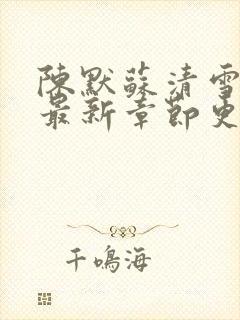 陳默蘇清雪
最新章節更
千鳴海